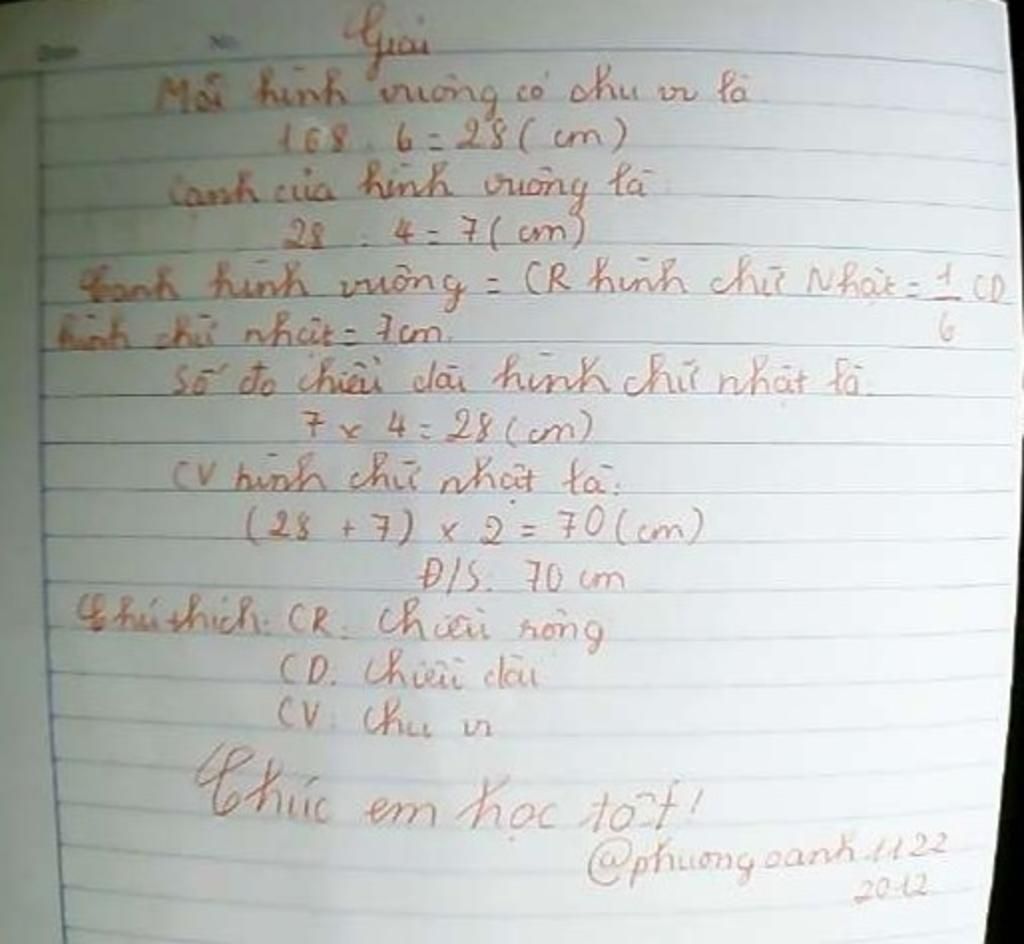 Giải
Mỗi hình vuông có chu vi là
168 : 6 = 28 (cm)
Cạnh của hình vuông là
28 : 4 = 7 (cm)
Cạnh hình vuông = CR hình chữ Nhật = 1/6 CD
hình chữ nhật = 7cm.
Số đo chiều dài hình chữ nhật là.
7 x 4 = 28 (cm)
CV hình chữ nhật là:
(28 + 7) x 2 = 70 (cm)
Đ/S: 70 cm
Chú thích: CR: Chiều rộng
CD: Chiều dài
CV: Chu vi
Chúc em học tốt!
@phuongoanh.1122
2012